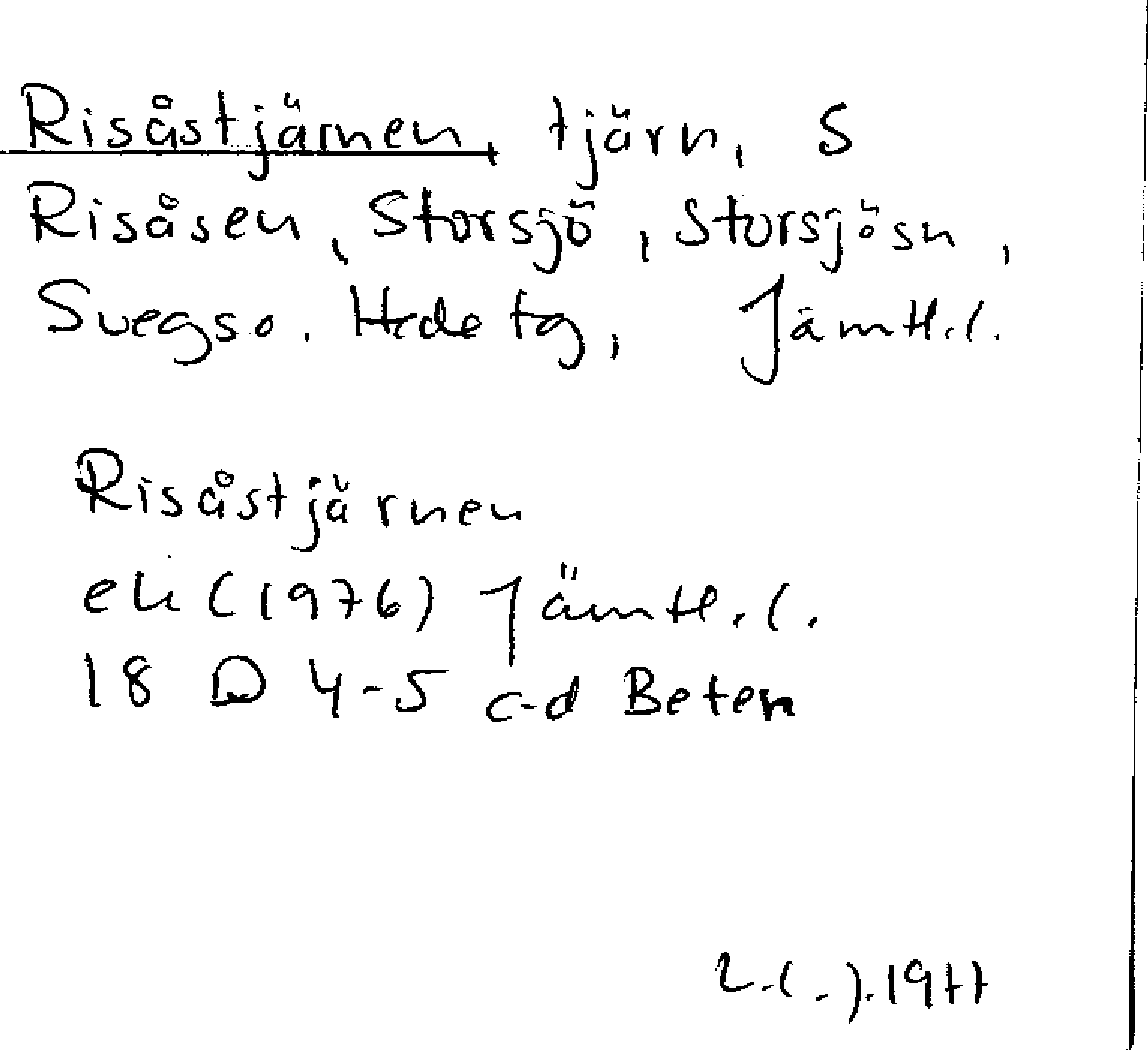 Risåstjärnen, tjärn, S
Risåsen, Storsjö, Storsjösn,
Svegs o. Hede tg, Jämtl.l.
Risåstjärnen
ek (1976) Jämtl.l.
18 D 4-5 c-d Beten
1977